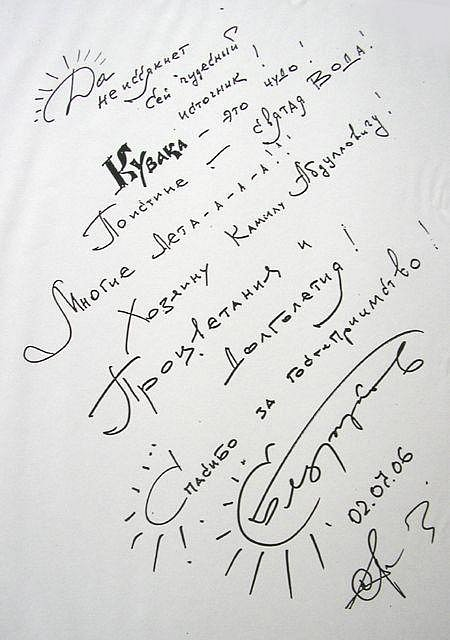 Да неиссякнет
сей чудесный
источник!
Кувака - это чудо!
Поистине - святая Вода!
Многие Лета-а-а-а!!
Хозяину Камилу Абдулловичу!
Процветания и
Долголетия!
Спасибо за гостеприимство!
02.07.06